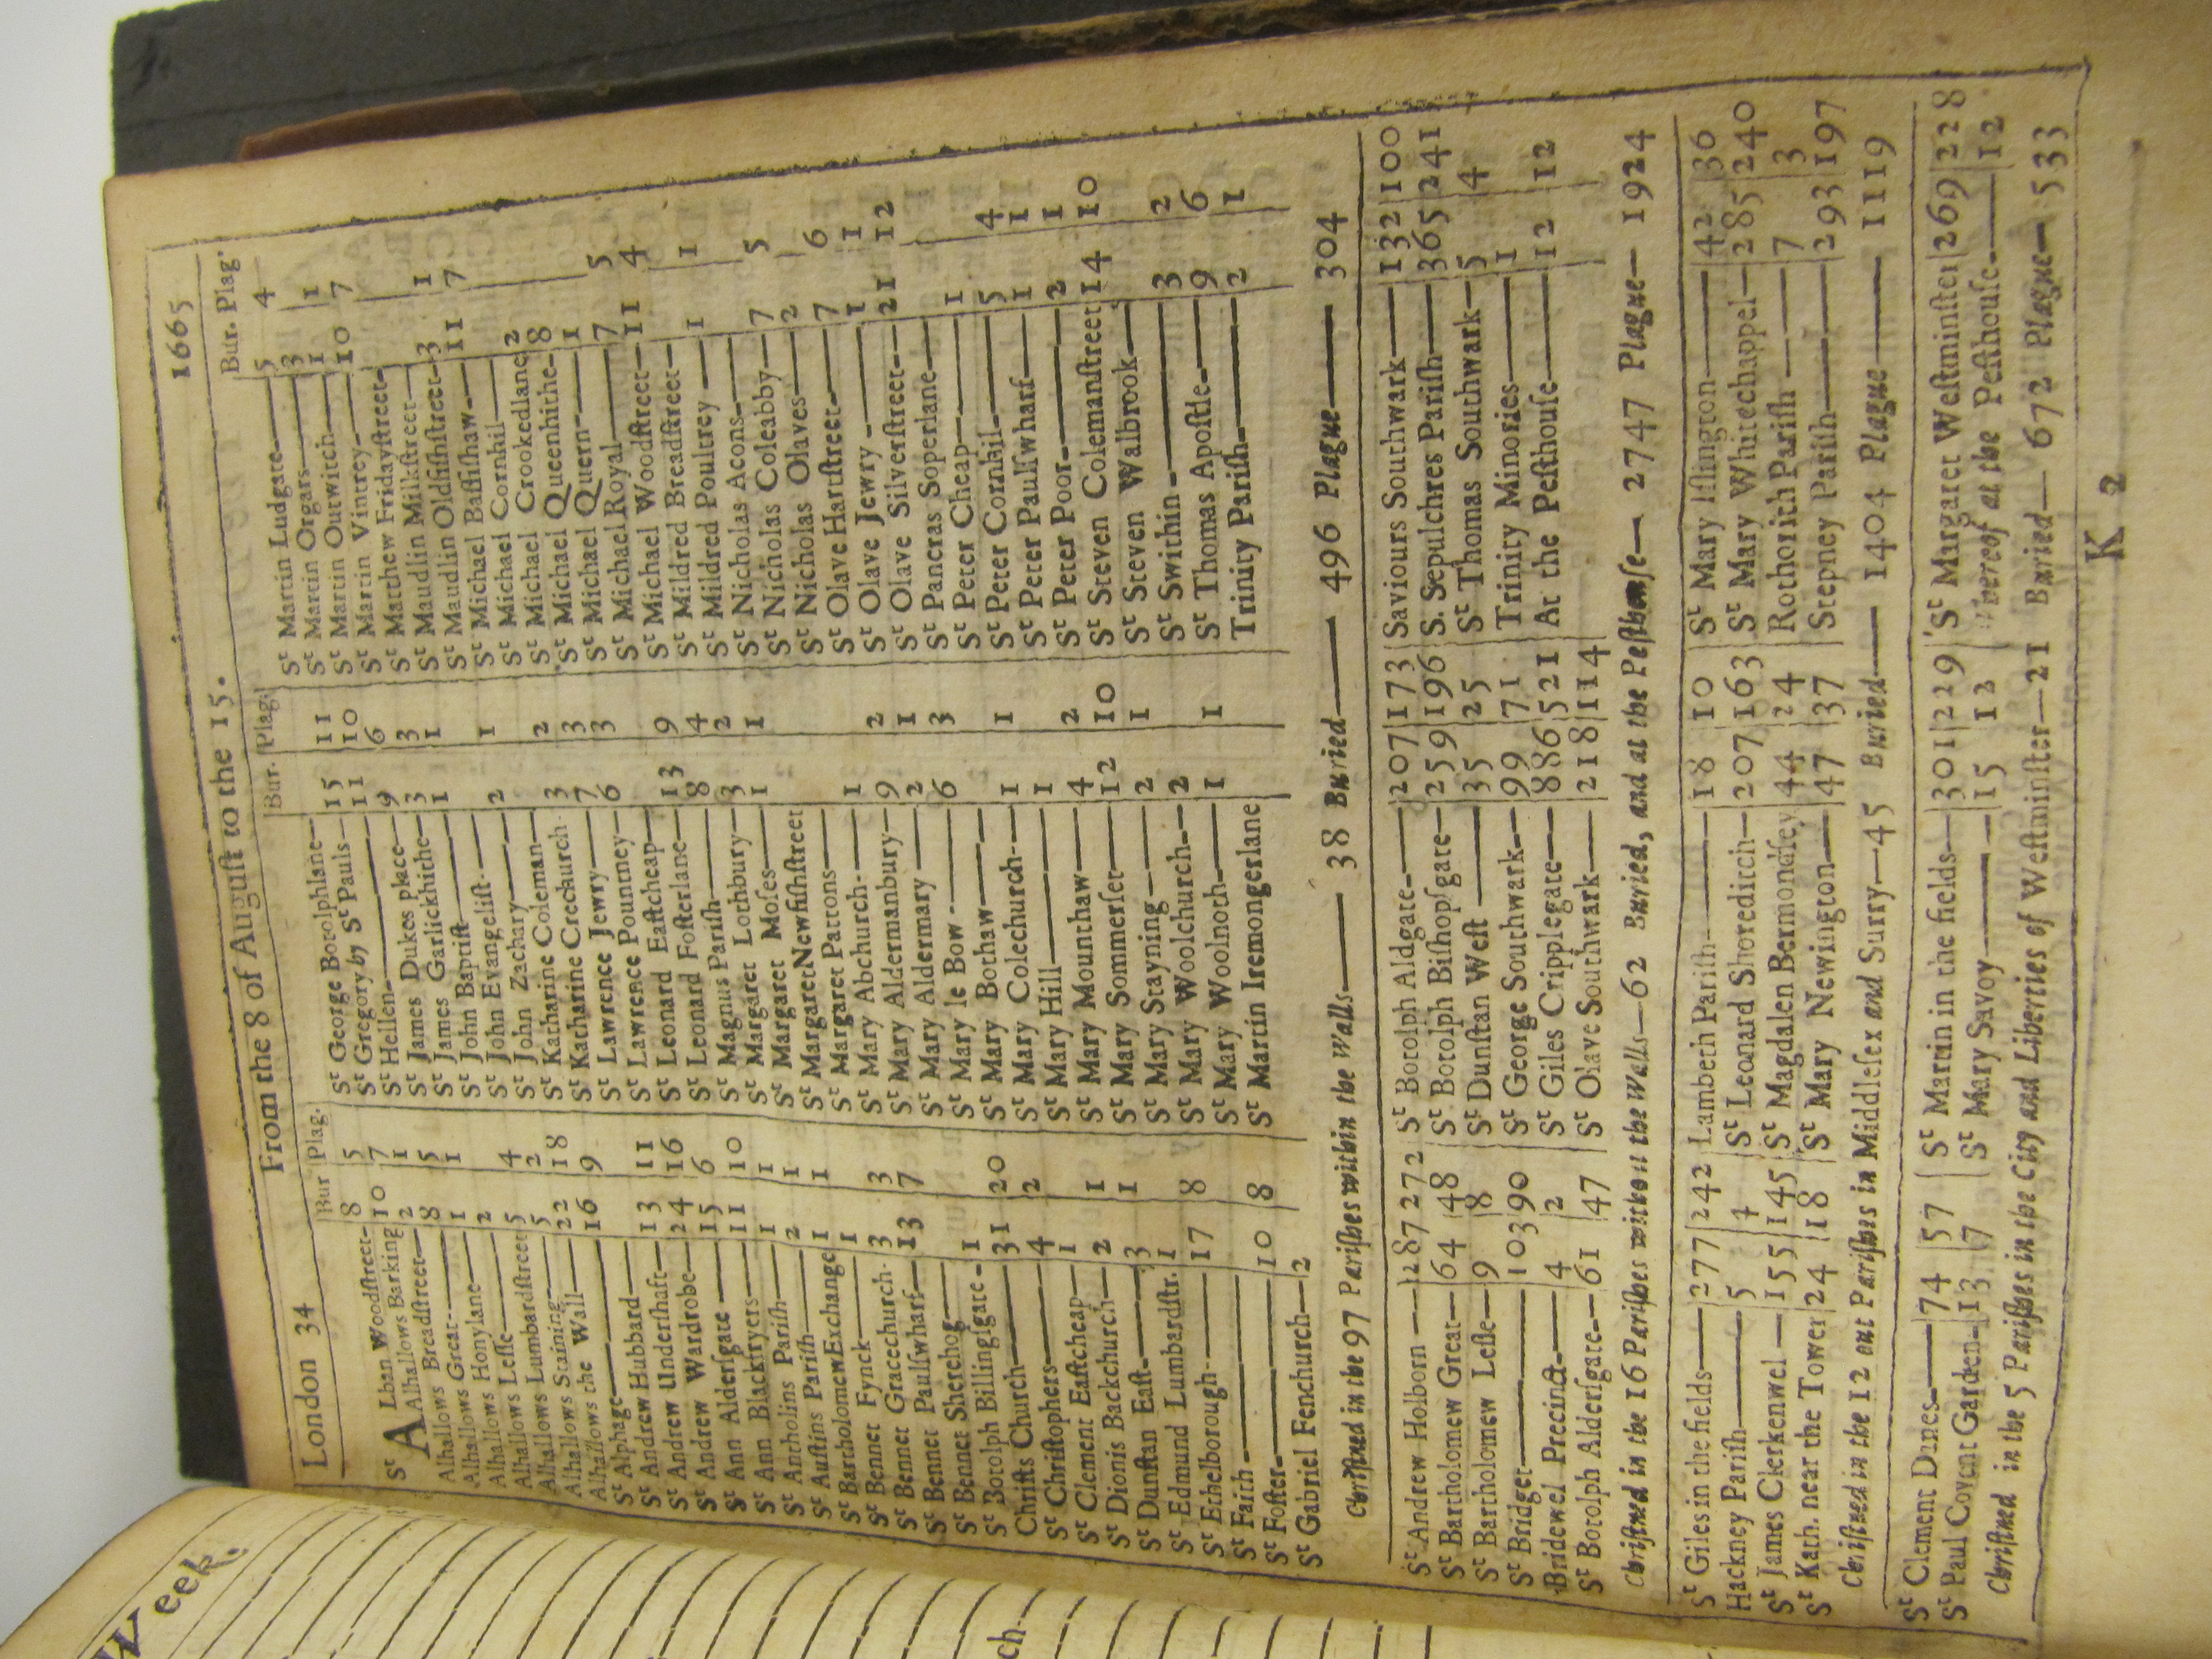 London 34 From the 8 of August to the 15. 1665
Bur Plag.
St ALban Woodstreet 8 5
Alhallows Barking 10 7
Alhallows Breadstreet 2 1
Alhallows Great 8 5
Alhallows Honylane 1 1
Alhallows Lesse 2
Alhallows Lumbardstreet 5 4
Alhallows Staining 5 2
Alhallows the Wall 22 18
St Alphage 16 9
St Andrew Hubbard
St Andrew Undershaft 13 11
St Andrew Wardrobe 24 16
St Ann Aldersgate 15 6
St Ann Blackfryers 11 10
St Antholins Parish 1 1
St Austins Parish 2 1
St Bartholomew Exchange 1 1
St Bennet Fynck 1
St Bennet Gracechurch 3 3
St Bennet Paulswharf 13 7
St Bennet Sherehog
St Botolph Billingsgate 1
Christs Church 31 20
St Christophers 4 2
St Clement Eastcheap 1
St Dionis Backchurch 2 1
St Dunstan East 3 1
St Edmund Lumbardstr. 1
St Ethelborough 17 8
St Faith
St Foster 10 8
St Gabriel Fenchurch 2
Bur. Plag.
St George Botolphlane
St Gregory by St Pauls 15 11
St Hellen 11 10
St James Dukes place 9 6
St James Garlickhithe 3 3
St John Baptist 1 1
St John Evangelist
St John Zachary 2 1
St Katharine Coleman
St Katharine Crechurch 3 2
St Lawrence Jewry 7 3
St Lawrence Pountney 6 3
St Leonard Eastcheap
St Leonard Fosterlane 13 9
St Magnus Parish 8 4
St Margaret Lothbury 3 2
St Margaret Moses 1 1
St Margaret Newfishstreet
St Margaret Pattons
St Mary Abchurch 1
St Mary Aldermanbury 9 2
St Mary Aldermary 2 1
St Mary le Bow 6 3
St Mary Bothaw
St Mary Colechurch 1 1
St Mary Hill 1
St Mary Mounthaw 4 2
St Mary Sommerset 12 10
St Mary Stayning 2 1
St Mary Woolchurch 2
St Mary Woolnoth 1 1
St Martin Iremongerlane
Bur. Plag.
St Martin Ludgate 5 4
St Martin Orgars 3
St Martin Outwitch 1 1
St Martin Vintrey 10 7
St Matthew Fridaystreet
St Maudlin Milkstreet
St Maudlin Oldfishstreet 3 1
St Michael Bassishaw 11 7
St Michael Cornhil
St Michael Crookedlane 2
St Michael Queenhithe 8
St Michael Quern 1
St Michael Royal 7 5
St Michael Woodstreet 11 4
St Mildred Breadstreet
St Mildred Poultrey 1 1
St Nicholas Acons
St Nicholas Coleabby 7 5
St Nicholas Olaves 2
St Olave Hartstreet 7 6
St Olave Jewry 1 1
St Olave Silverstreet 21 12
St Pancras Soperlane
St Peter Cheap 1
St Peter Cornhil 5 4
St Peter Paulswharf 1 1
St Peter Poor 2 1
St Steven Colemanstreet 14 10
St Steven Walbrook
St Swithin 3 2
St Thomas Apostle 9 6
Trinity Parish 2 1
Christned in the 97 Parishes within the Walls 38 Buried 496 Plague 304
St Andrew Holborn 287 272
St Bartholomew Great 64 48
St Bartholomew Lesse 9 8
St Bridget 103 90
Bridewel Precinct 4 2
St Botolph Aldersgate 61 47
St Botolph Aldgate 207 173
St Botolph Bishopsgate 259 196
St Dunstan West 35 25
St George Southwark 99 71
St Giles Cripplegate 886 521
St Olave Southwark 218 114
Saviours Southwark 132 100
S. Sepulchres Parish 365 241
St Thomas Southwark 5 4
Trinity Minories 1
At the Pesthouse 12 12
Christned in the 16 Parishes without the Walls—62 Buried, and at the Pesthouse—2747 Plague—1924
St Giles in the fields 277 242
Hackney Parish 5 4
St James Clerkenwel 155 145
St Kath. near the Tower 24 18
Lambeth Parish 18 10
St Leonard Shoreditch 207 163
St Magdalen Bermondsey 44 24
St Mary Newington 47 37
St Mary Islington 42 36
St Mary Whitechappel 285 240
Rothorith Parish 7 3
Stepney Parish 293 197
Christned in the 12 out Parishes in Middlesex and Surry—45 Buried—1404 Plague—1119
St Clement Danes 74 57
St Paul Covent Garden 13 7
St Martin in the fields 301 229
St Mary Savoy 15 12
St Margaret Westminster 269 228
whereof at the Pesthouse 12
Christned in the 5 Parishes in the City and Liberties of Westminster—21 Buried—672 Plague—533
K 2
Week.
ch